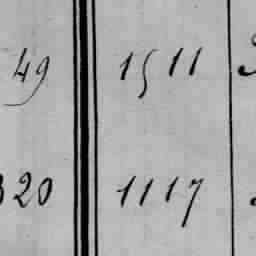 49 1511
320 1117